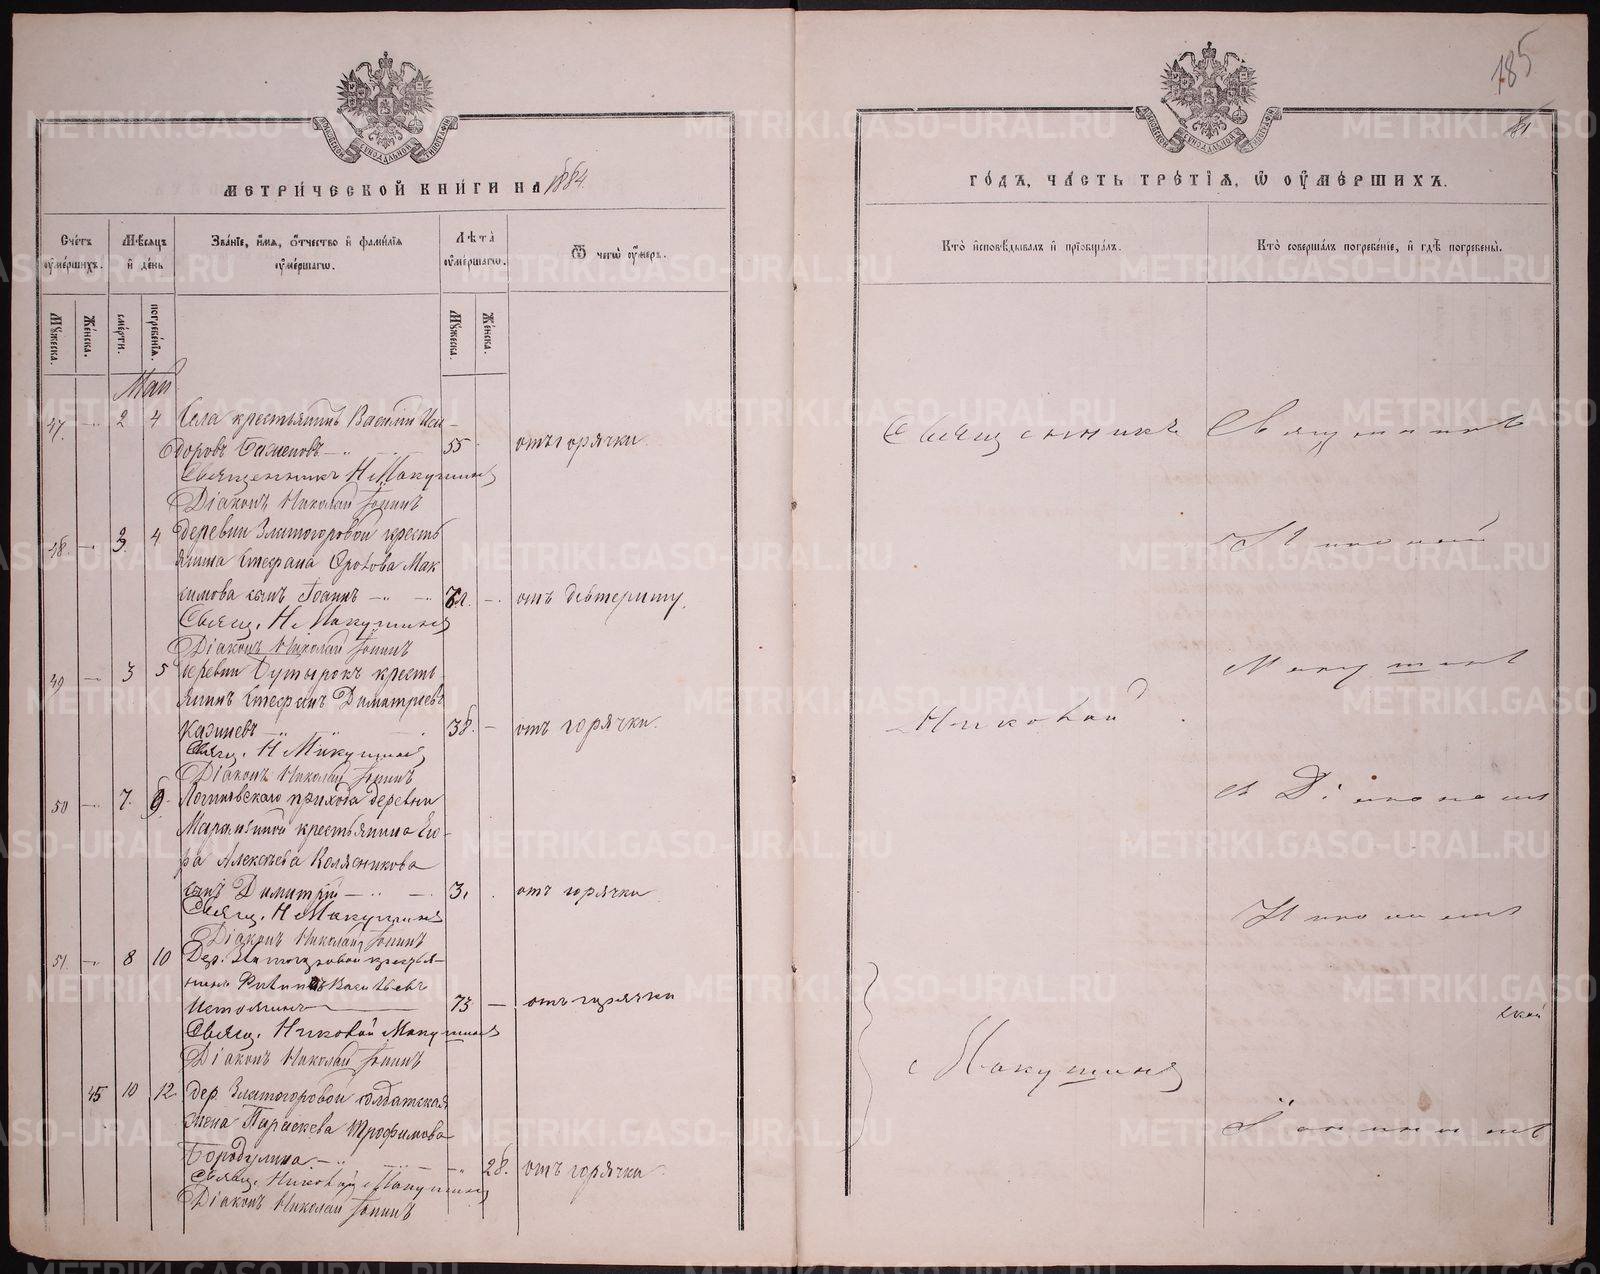 185
МЕТРИЧЕСКОЙ КНИГИ НА 1884.
Счетъ умершихъ.
Мѣсяцъ и день
Званіе, имя, отчество и фамилія умершаго.
Лѣта умершаго.
Отъ чего умеръ.
Мужеска.
Женска.
смерти.
погребенія.
Мужеска.
Женска.
Май
47. 2 4 Села крестьянинъ Василій Иси-
доровъ Баженовъ 55 отъ горячки.
Священникъ Н Макушинъ
Діаконъ Николай Іонинъ
48. 3 4 деревни Златогоровой кресть
янина Стефана Максимова сынъ Іоаннъ отъ
Свящ. Н Макушинъ
Діаконъ Николай Іонинъ
49 3 5 деревни Бутырокъ кресть
янинъ Стефанъ Димитріевъ
38. отъ горячки.
Свящ. Н Макушинъ
Діаконъ Николай Іонинъ
50 7. 9. Логиновскаго прихода деревни
крестьянина Его-
ра Алексѣева Колясникова
сынъ Димитрій 3. отъ горячки
Свящ. Н Макушинъ
Діаконъ Николай Іонинъ
51. 8 10 Дер. Златогоровой крестья-
нинъ Васильевъ
Истоминъ 73 отъ горячки
Свящ. Николай Макушинъ
Діаконъ Николай Іонинъ
45 10 12 дер. Златогоровой солдатская
жена Параскева Трофимова
Бородулина 28. отъ горячки
Свящ. Николай Макушинъ
Діаконъ Николай Іонинъ
ГОДЪ, ЧАСТЬ ТРЕТІЯ, Ѡ УМЕРШИХЪ.
Кто исповѣдывалъ и пріобщалъ.
Кто совершалъ погребеніе, и гдѣ погребены.
Священникъ
Николай
Макушинъ
Священникъ
Николай
Макушинъ
съ Діакономъ
Николаемъ
Іонинымъ
METRIKI.GASO-URAL.RU